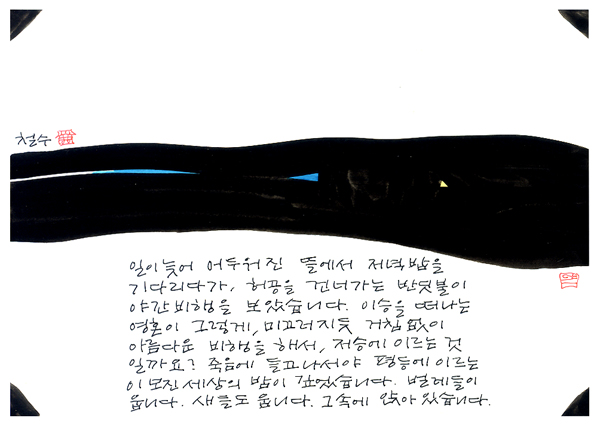 철수
일이 늦어 어두워진 뜰에서 저녁밥을
기다리다가, 허공을 건너가는 반딧불이
야간비행을 보았습니다. 이승을 떠나는
영혼이 그렇게, 미끄러지듯 거침없이
아름다운 비행을 해서, 저승에 이르는 것
일까요? 죽음에 들고나서야 평등에 이르는
이 모진 세상의 밤이 깊었습니다. 벌레들이
웁니다. 새들도 웁니다. 그 속에 앉아 있습니다.